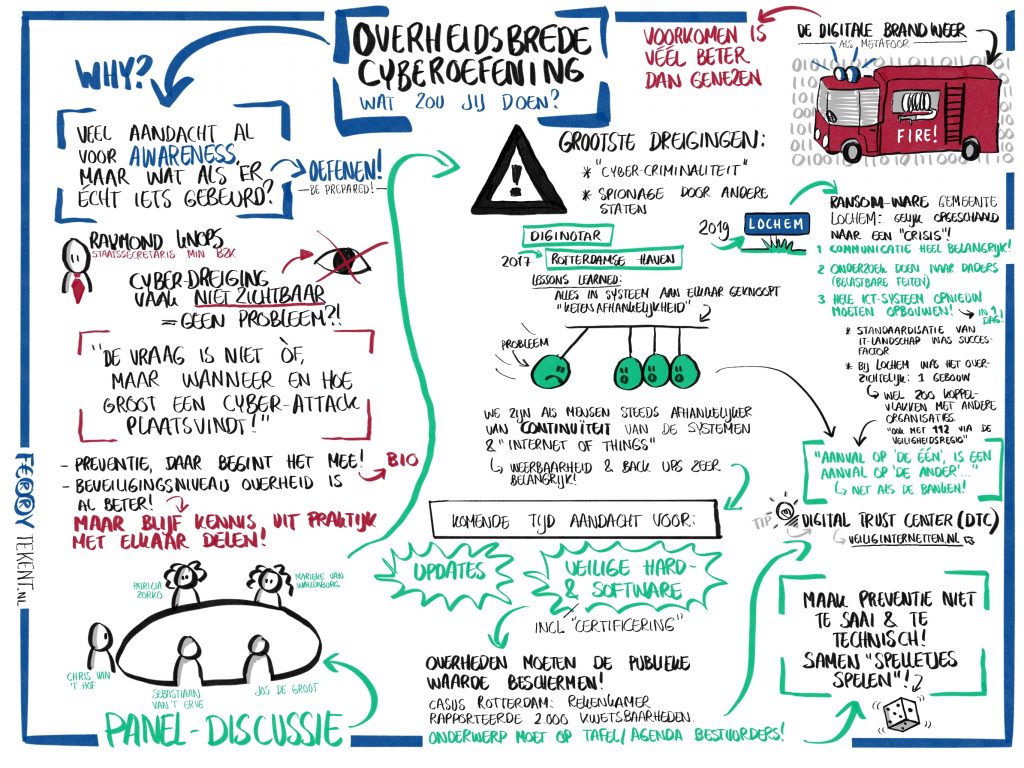 OVERHEIDSBREDE
CYBEROEFENING
WAT ZOU JIJ DOEN?
WHY?
VEEL AANDACHT AL
VOOR AWARENESS,
MAAR WAT ALS ER
ÉCHT IETS GEBEURD?
OEFENEN!
- BE PREPARED! -
RAYMOND KNOPS
STAATSSECRETARIS MIN BZK
CYBER-DREIGING
VAAK NIET ZICHTBAAR
= GEEN PROBLEEM?!
"DE VRAAG IS NIET ÒF,
MAAR WANNEER EN HOE
GROOT EEN CYBER-ATTACK
PLAATSVINDT!"
- PREVENTIE, DAAR BEGINT HET MEE!
BIO
- BEVEILIGINGSNIVEAU OVERHEID IS
AL BETER!
MAAR BLIJF KENNIS, UIT PRAKTIJK
MET ELKAAR DELEN!
PATRICIA
ZORKO
MARIEKE VAN
WALLENBURG
CHRIS VAN
'T HOF
SEBASTIAAN
VAN 'T ERVE
JOS DE GROOT
PANEL-DISCUSSIE
FERRY TEKENT.NL
GROOTSTE DREIGINGEN:
* "CYBER-CRIMINALITEIT"
* SPIONAGE DOOR ANDERE
STATEN
DIGINOTAR
2017 ROTTERDAMSE HAVEN
LESSONS LEARNED:
ALLES IN SYSTEEM AAN ELKAAR GEKNOOPT
"KETENAFHANKELIJKHEID"
PROBLEEM
WE ZIJN ALS MENSEN STEEDS AFHANKELIJKER
VAN "CONTINUÏTEIT" VAN DE SYSTEMEN
& "INTERNET OF THINGS"
WEERBAARHEID & BACK UPS ZEER
BELANGRIJK!
KOMENDE TIJD AANDACHT VOOR:
UPDATES
VEILIGE HARD-
& SOFTWARE
INCL "CERTIFICERING"
OVERHEDEN MOETEN DE PUBLIEKE
WAARDE BESCHERMEN!
CASUS ROTTERDAM: REKENKAMER
RAPPORTEERDE 2.000 KWETSBAARHEDEN.
ONDERWERP MOET OP TAFEL/AGENDA BESTUURDERS!
VOORKOMEN IS
VÉÉL BETER
DAN GENEZEN
DE DIGITALE BRANDWEER
- ALS METAFOOR -
FIRE!
2019
LOCHEM
RANSOM-WARE GEMEENTE
LOCHEM: GELIJK OPGESCHAALD
NAAR EEN "CRISIS"!
1 COMMUNICATIE HEEL BELANGRIJK!
2 ONDERZOEK DOEN NAAR DADERS
(BELASTBARE FEITEN)
3 HELE ICT-SYSTEEM OPNIEUW
MOETEN OPBOUWEN!
IN 1
DAG!
* STANDAARDISATIE VAN
IT-LANDSCHAP WAS SUCCES-
FACTOR
* BIJ LOCHEM WAS HET OVER-
ZICHTELIJK: 1 GEBOUW
WEL 200 KOPPEL-
VLAKKEN MET ANDERE
ORGANISATIES.
"OOK MET 112 VIA DE
VEILIGHEIDSREGIO"
"AANVAL OP 'DE ÉÉN', IS EEN
AANVAL OP 'DE ANDER'..."
NET ALS DE BANKEN!
TIP
DIGITAL TRUST CENTER (DTC)
VEILIGINTERNETTEN.NL
MAAK PREVENTIE NIET
TE SAAI & TE
TECHNISCH!
SAMEN "SPELLETJES
SPELEN"!